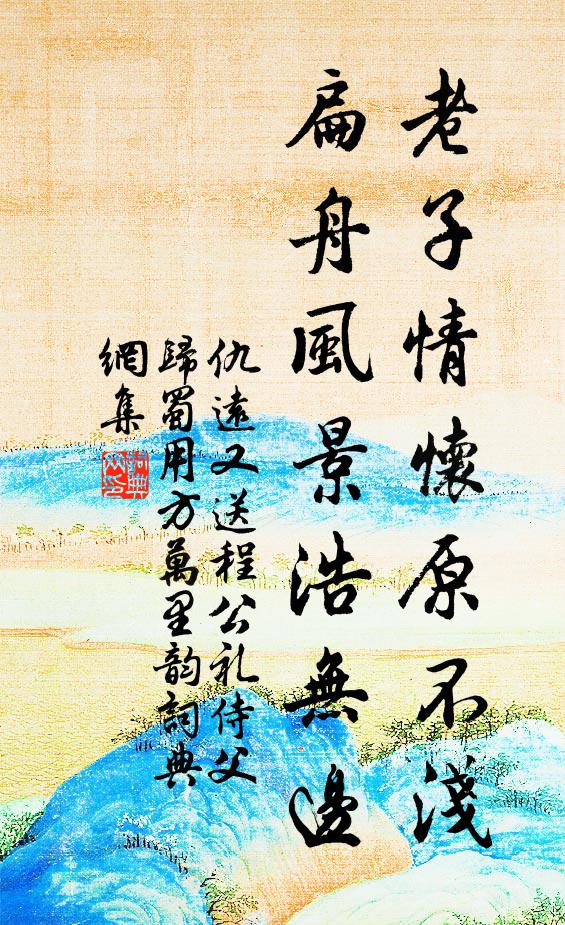 老子情懷原不淺
扁舟風景浩無邊
仇遠又送程公礼侍父
歸蜀用方萬里韵詞典
網集